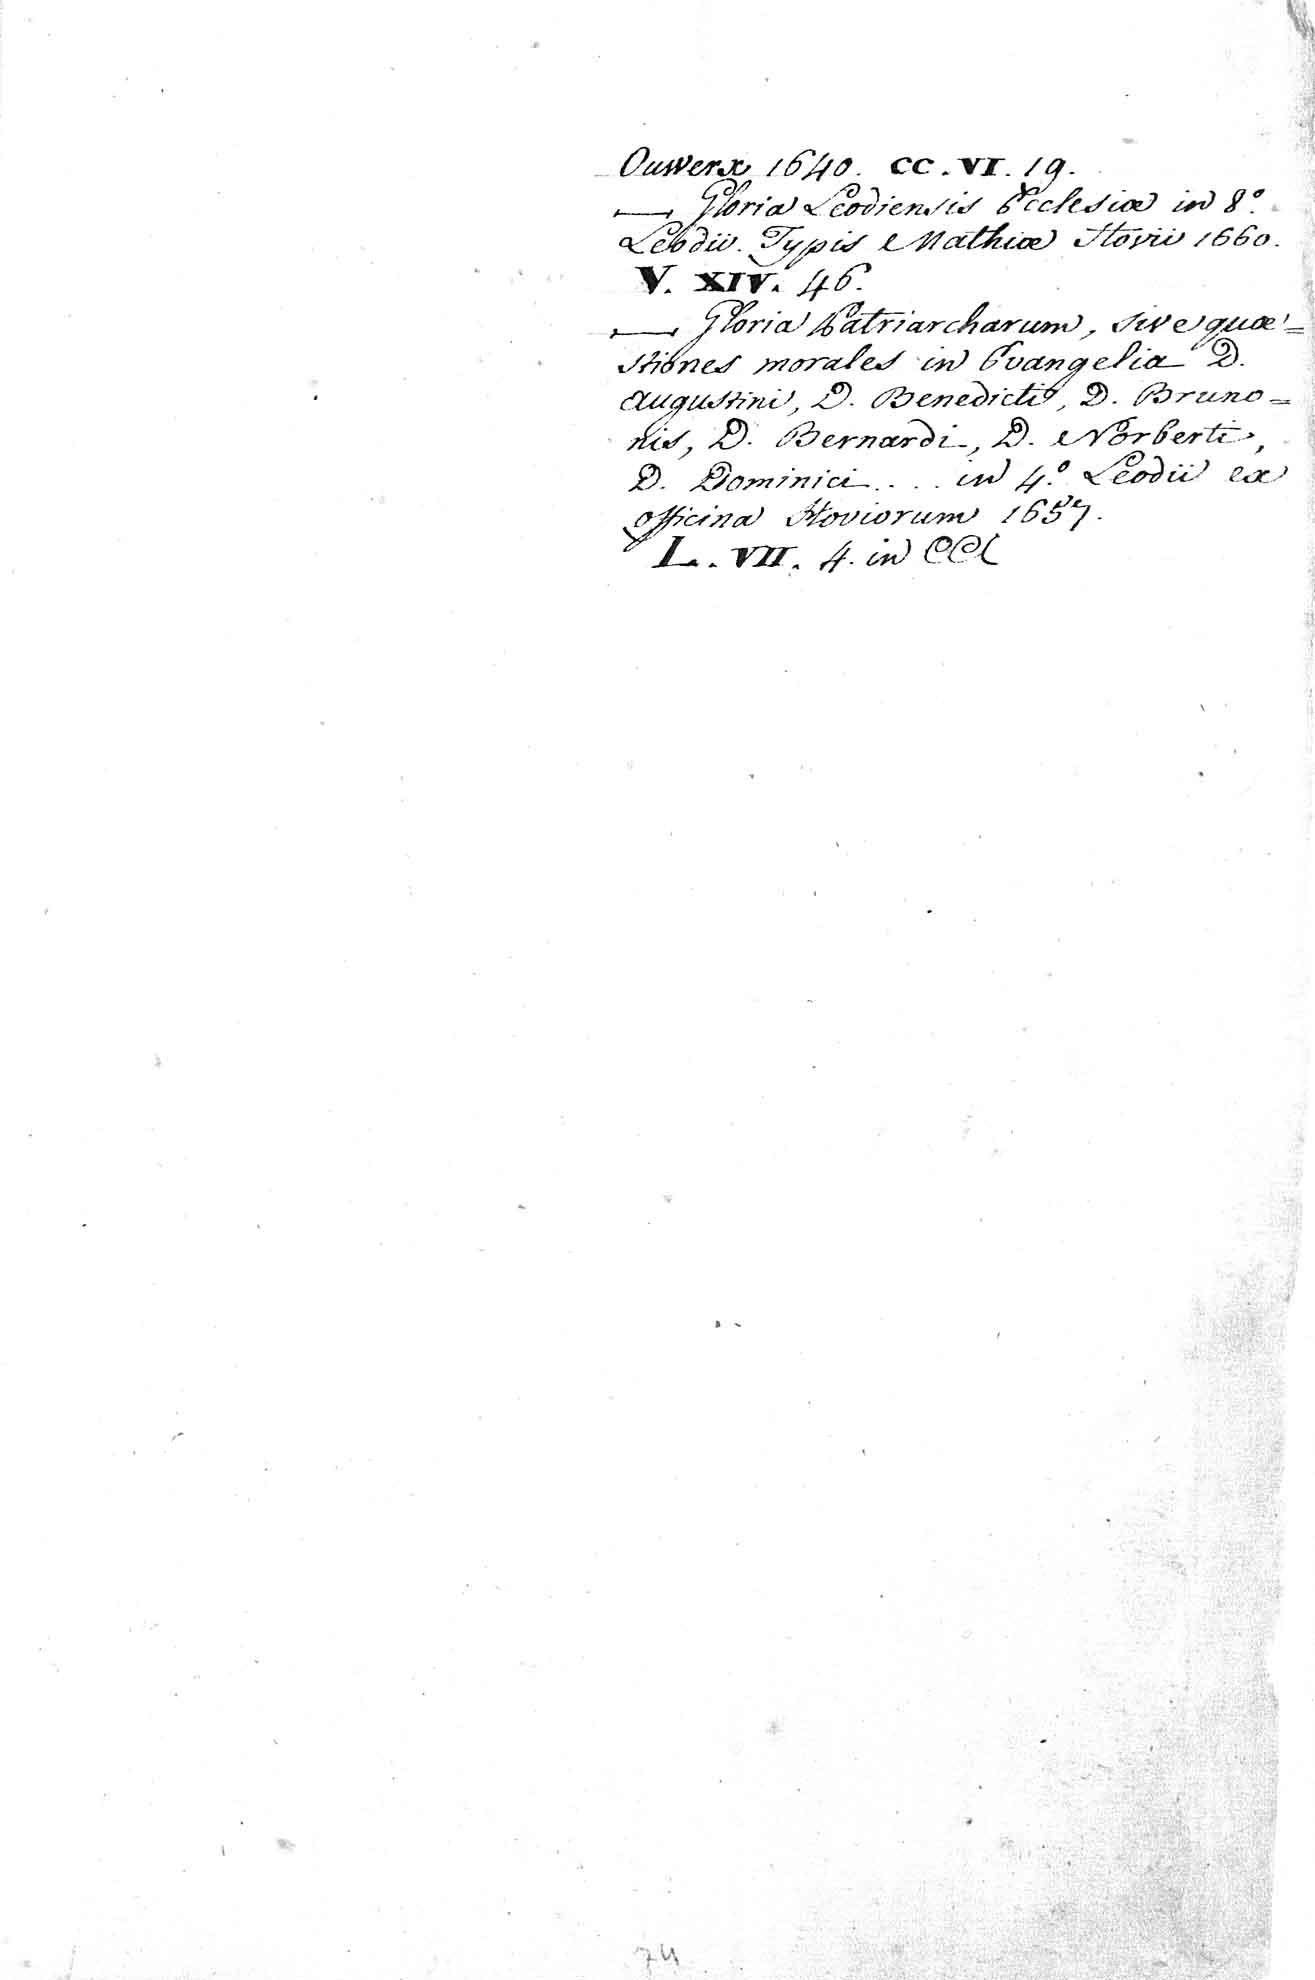 Ouwerx 1640. CC. VI. 19.
— Gloria Leodiensis Ecclesiæ in 8.°
Leodii. Typis Mathiæ Hovii 1660.
V. XIV. 46.
— Gloria Patriarcharum, sive quæ=
stiones morales in Evangelia D.
Augustini, D. Benedicti, D. Bruno=
nis, D. Bernardi, D. Norberti,
D. Dominici.... in 4.° Leodii ex
officina Hoviorum 1657.
L. VII. 4. in
74